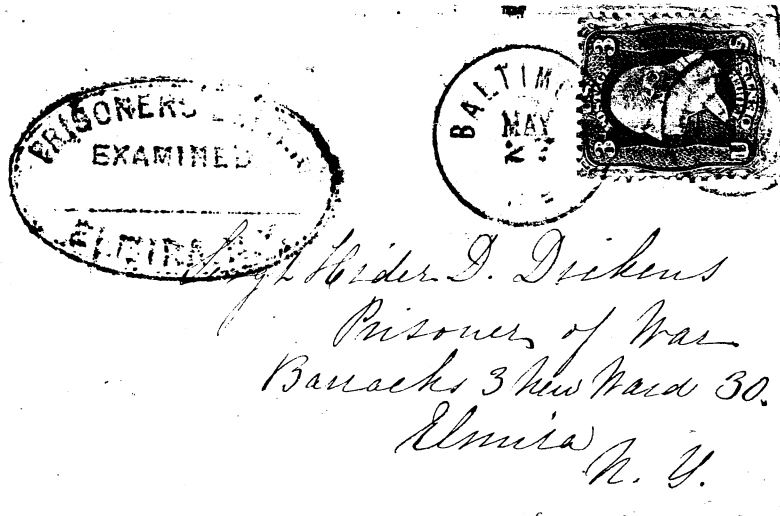 PRISONERS
EXAMINED
ELMIRA N.Y.
BALTIMO
MAY
3 3
Sergt Hider D. Dickens
Prisoner of War
Barracks 3 New Ward 30.
Elmira
N. Y.